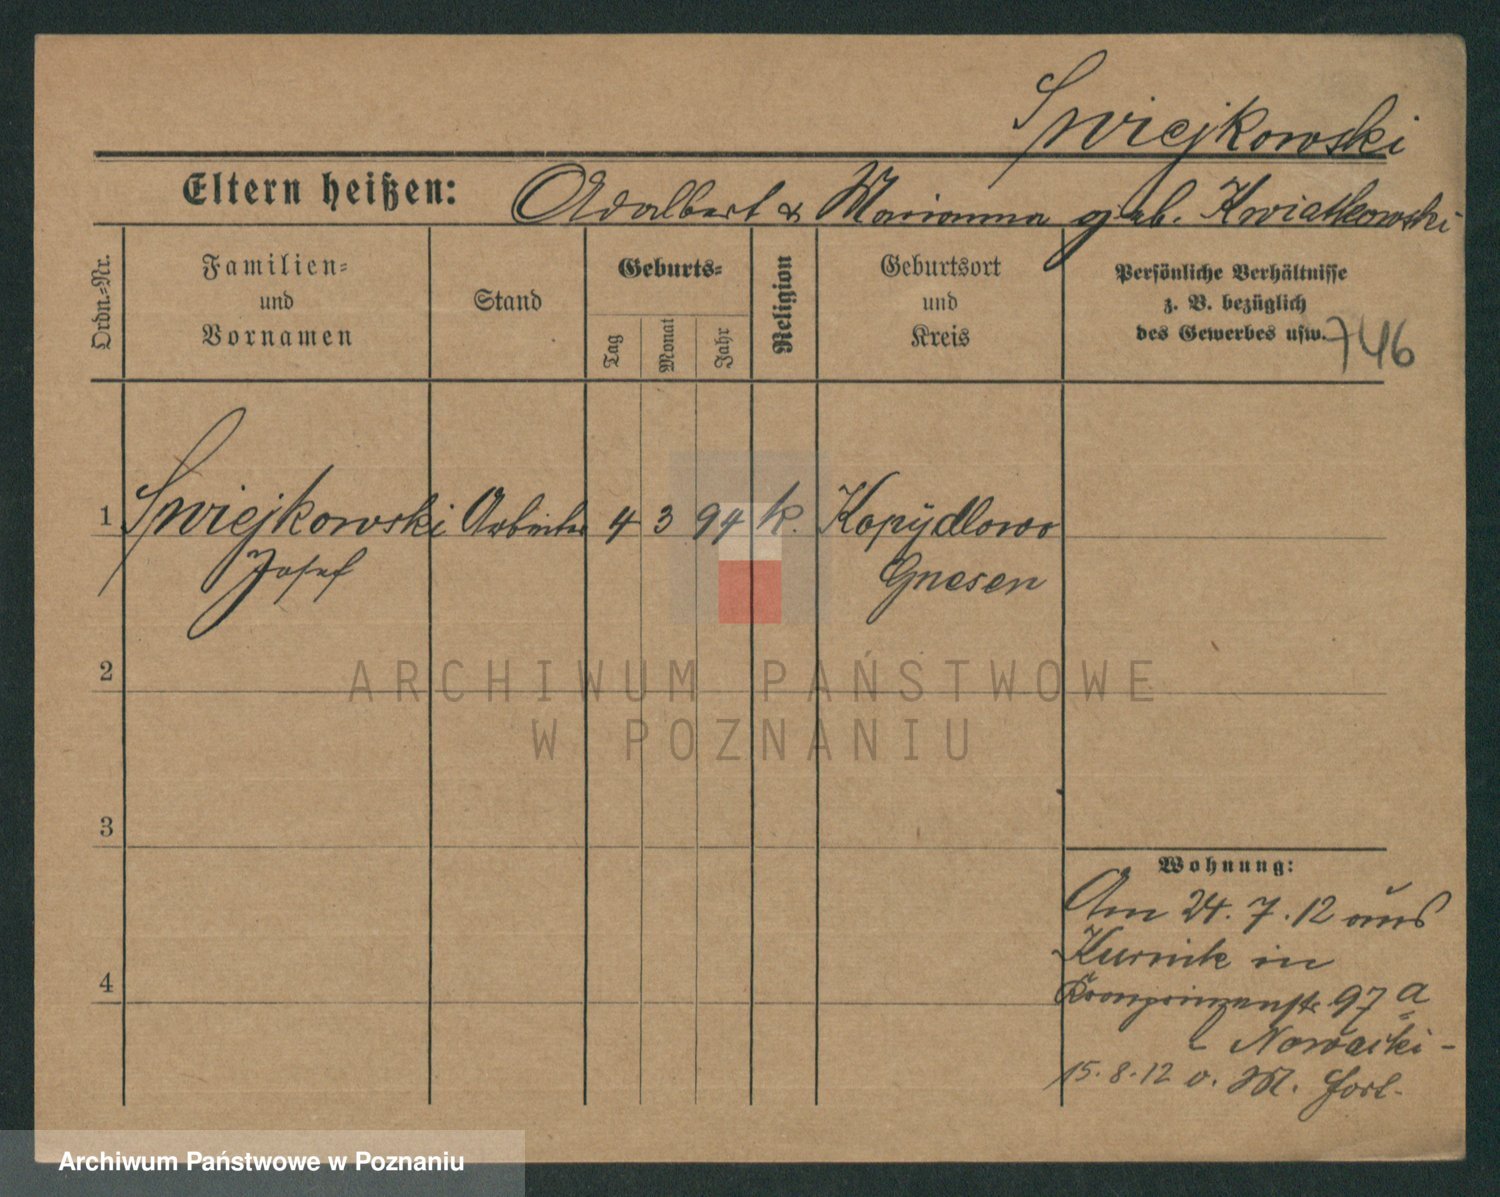 Swiejkowski
Eltern heißen: Adalbert & Marianna geb. Kwiatkowski
Ordn.-Nr.
Familien-
und
Vornamen
Stand
Geburts-
Tag
Monat
Jahr
Religion
Geburtsort
und
Kreis
Persönliche Verhältnisse
z. B. bezüglich
des Gewerbes usw.
746
1 Swiejkowski Arbeiter 4 3 94 k. Kopydlowo
Josef Gnesen
2
ARCHIWUM PAŃSTWOWE
W POZNANIU
3
Wohnung:
Am 24.7.12 aus
Kurnik in
4
Kronprinzenstr. 97a
- Nowacki -
15.8.12 o. M. fort.
Archiwum Państwowe w Poznaniu